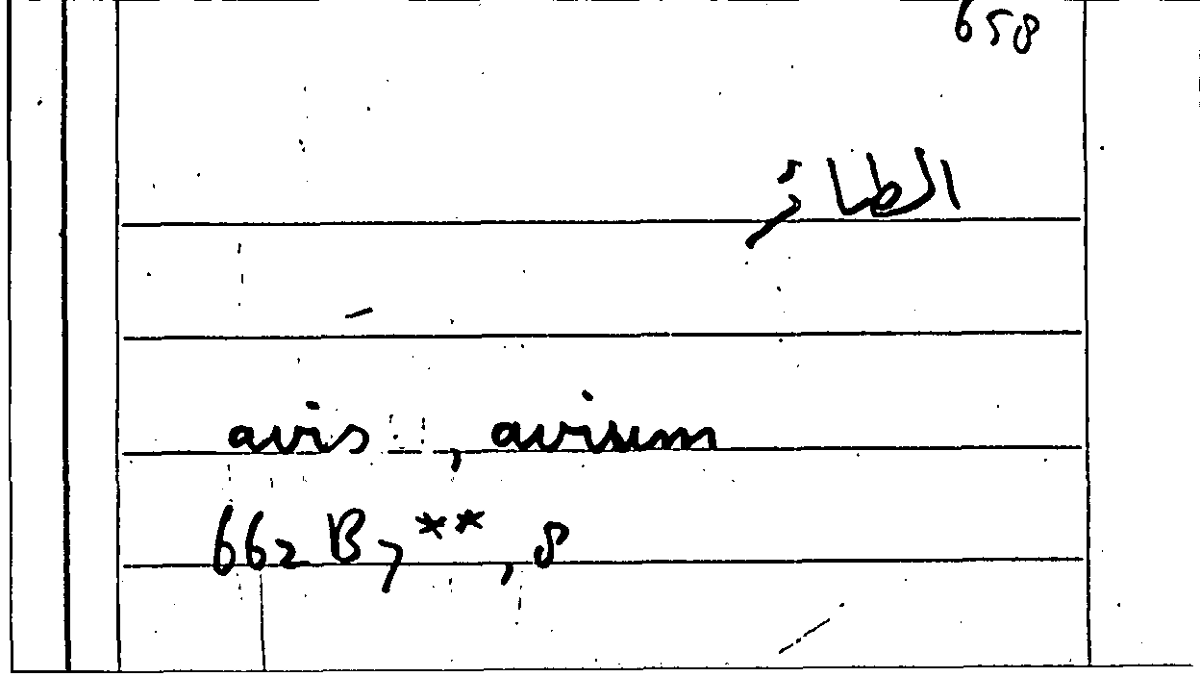 658
الطائر
avis , avium
662 B 7** , 8